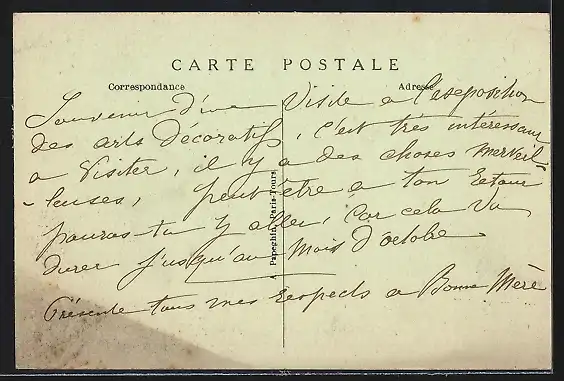 CARTE POSTALE
Correspondance
Adresse
Souvenir d'une Visite a l'exposition
des arts Decoratifs, c'est très intéressant
a Visiter, il y a des choses merveil-
-leuses, peut être a ton Retour
pouras-tu y aller, Car cela Va
Durer jusqu'au mois d'octobre
Présente tous mes Respects a Bonne Mère
A. Papeghin, Paris-Tours